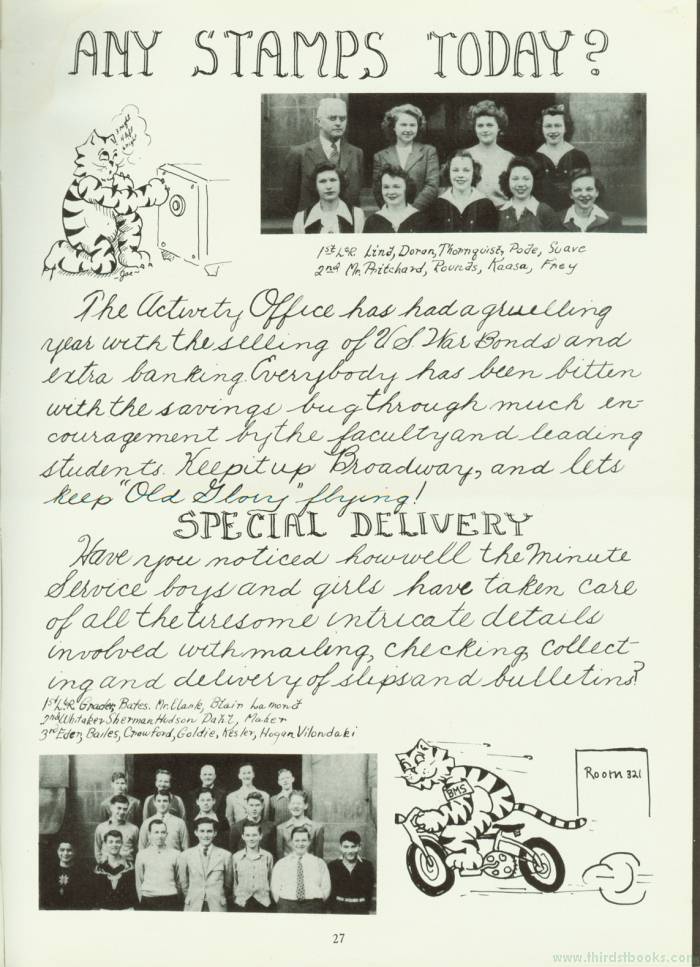 ANY STAMPS TODAY?
1st L-R Lind, Doran, Thornquist, Pode, Suave
2nd Mr. Pritchard, Pounds, Kaasa, Frey
The Activity Office has had a gruelling
year with the selling of US War Bonds and
extra banking. Everybody has been bitten
with the savings bug through much en-
couragement by the faculty and leading
students. Keep it up Broadway, and lets
keep "Old Glory" flying!
SPECIAL DELIVERY
Have you noticed how well the Minute
Service boys and girls have taken care
of all the tiresome intricate details
involved with mailing, checking, collect-
ing and delivery of slips and bulletins?
1st L-R Grader, Bates. Mr. Clark, Blair Lamont
2nd Whitaker Sherman Hudson Dahl, Maker
3rd Eden, Bailes, Crawford, Goldie, Kesler, Hogan Vilondaki
BMS
Room 321
27
www.thirdstbooks.com